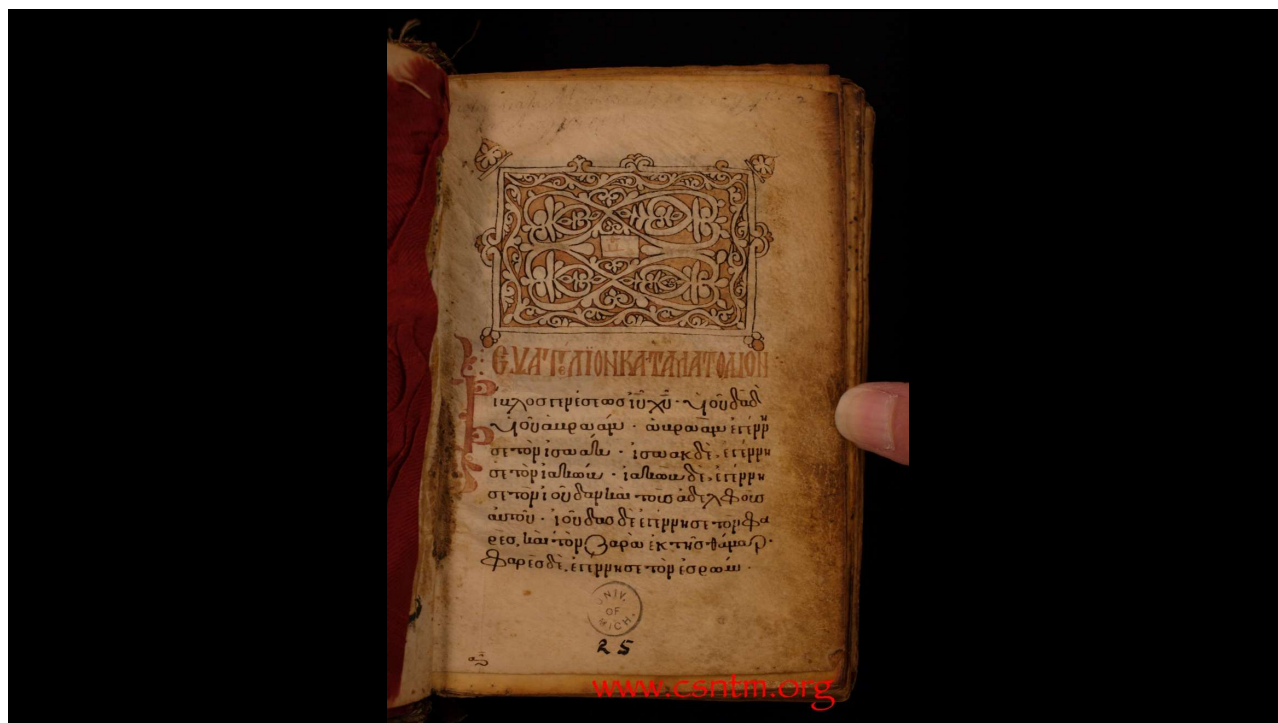 ΕΥΑΓΓΕΛΙΟΝ ΚΑΤΑ ΜΑΤΘΑΙΟΝ
Βίβλος γενέσεως ἰ̅υ̅ χ̅υ̅ · υἱοῦ δα̅δ̅
υἱοῦ ἀβραάμ · ἀβραὰμ ἐγέννη
σε τὸν ἰσαάκ · ἰσαὰκ δὲ, ἐγέννη
σε τὸν ἰακώβ · ἰακὼβ δὲ, ἐγέννη
σε τὸν ἰούδαν καὶ τοὺς ἀδελφοὺς
αὐτοῦ · ἰούδας δὲ ἐγέννησε τὸν φα
ρὲς, καὶ τὸν ζαρὰ ἐκ τῆς θάμαρ ·
φαρὲς δὲ, ἐγέννησε τὸν ἐσρώμ ·
UNIV.
OF
MICH.
25
www.csntm.org